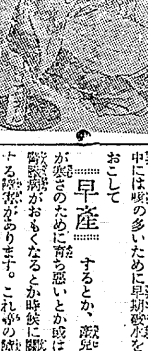 中には咳の多いために早期破水を
おこして
早産
するとか、胎兒
が寒さのために育ち悪いとか或は
病がおもくなるとか時候に關
する障害があります。これ等の